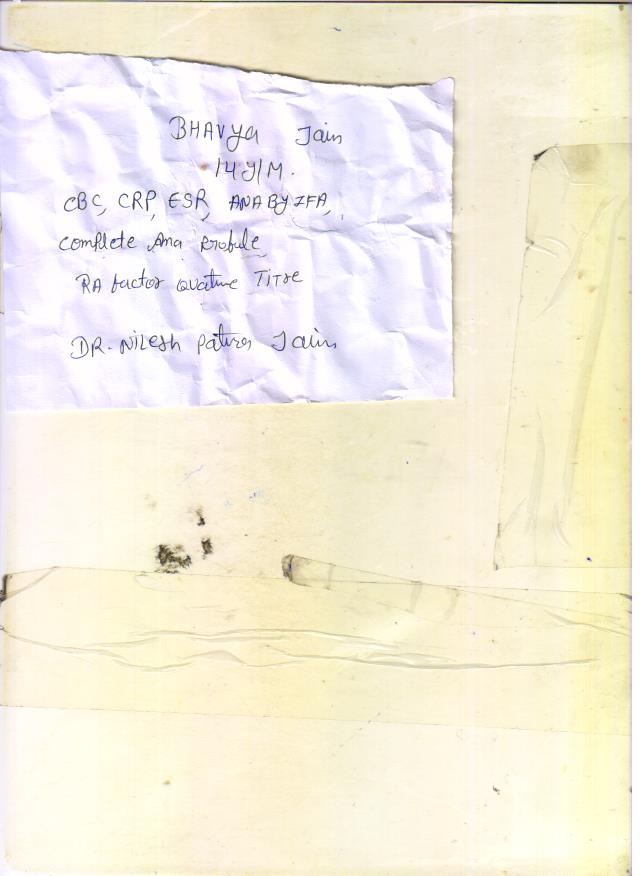 BHAVYA Jain
14Y/M.
CBC, CRP, ESR, ANA BY IFA,
Complete Ana Profile
RA factor Titre
DR. Nilesh Jain